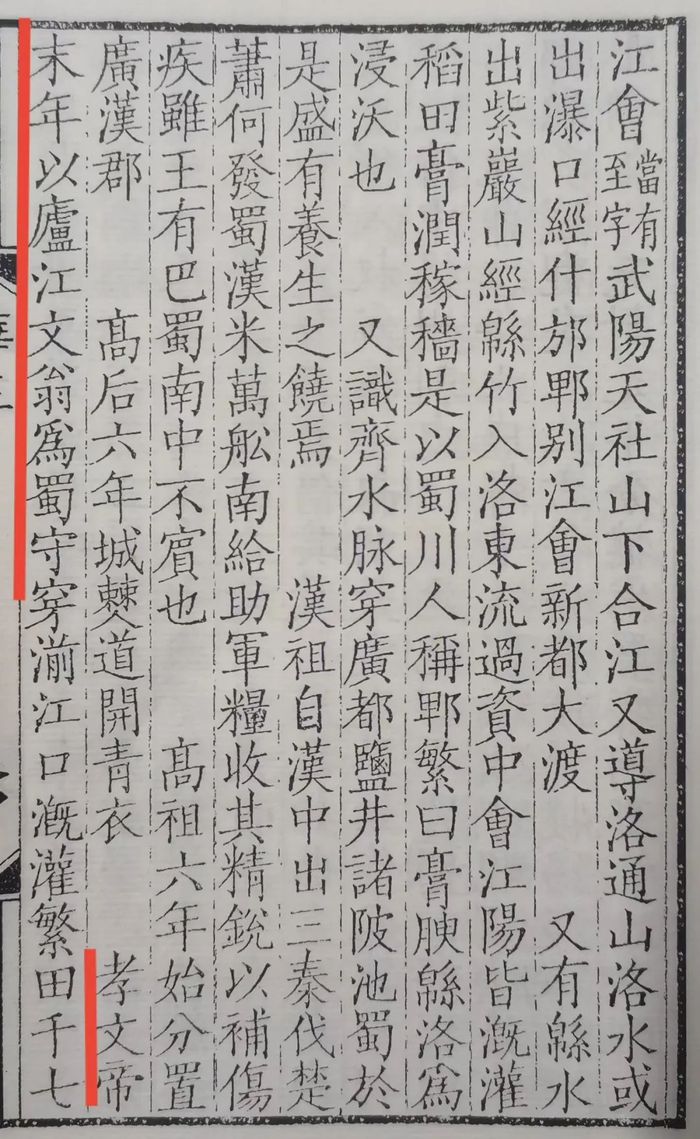 江會當有至字武陽天社山下合江又導洛通山洛水或
出瀑口經什邡郫別江會新都大渡 又有緜水
出紫巖山經緜竹入洛東流過資中會江陽皆溉灌
稻田膏潤稼穡是以蜀川人稱郫繁曰膏腴緜洛爲
浸沃也 又識齊水脉穿廣都鹽井諸陂池蜀於
是盛有養生之饒焉 漢祖自漢中出三秦伐楚
蕭何發蜀漢米萬舩南給助軍糧收其精銳以補傷
疾雖王有巴蜀南中不賓也 髙祖六年始分置
廣漢郡 髙后六年城僰道開青衣 孝文帝
末年以廬江文翁爲蜀守穿湔江口溉灌繁田千七